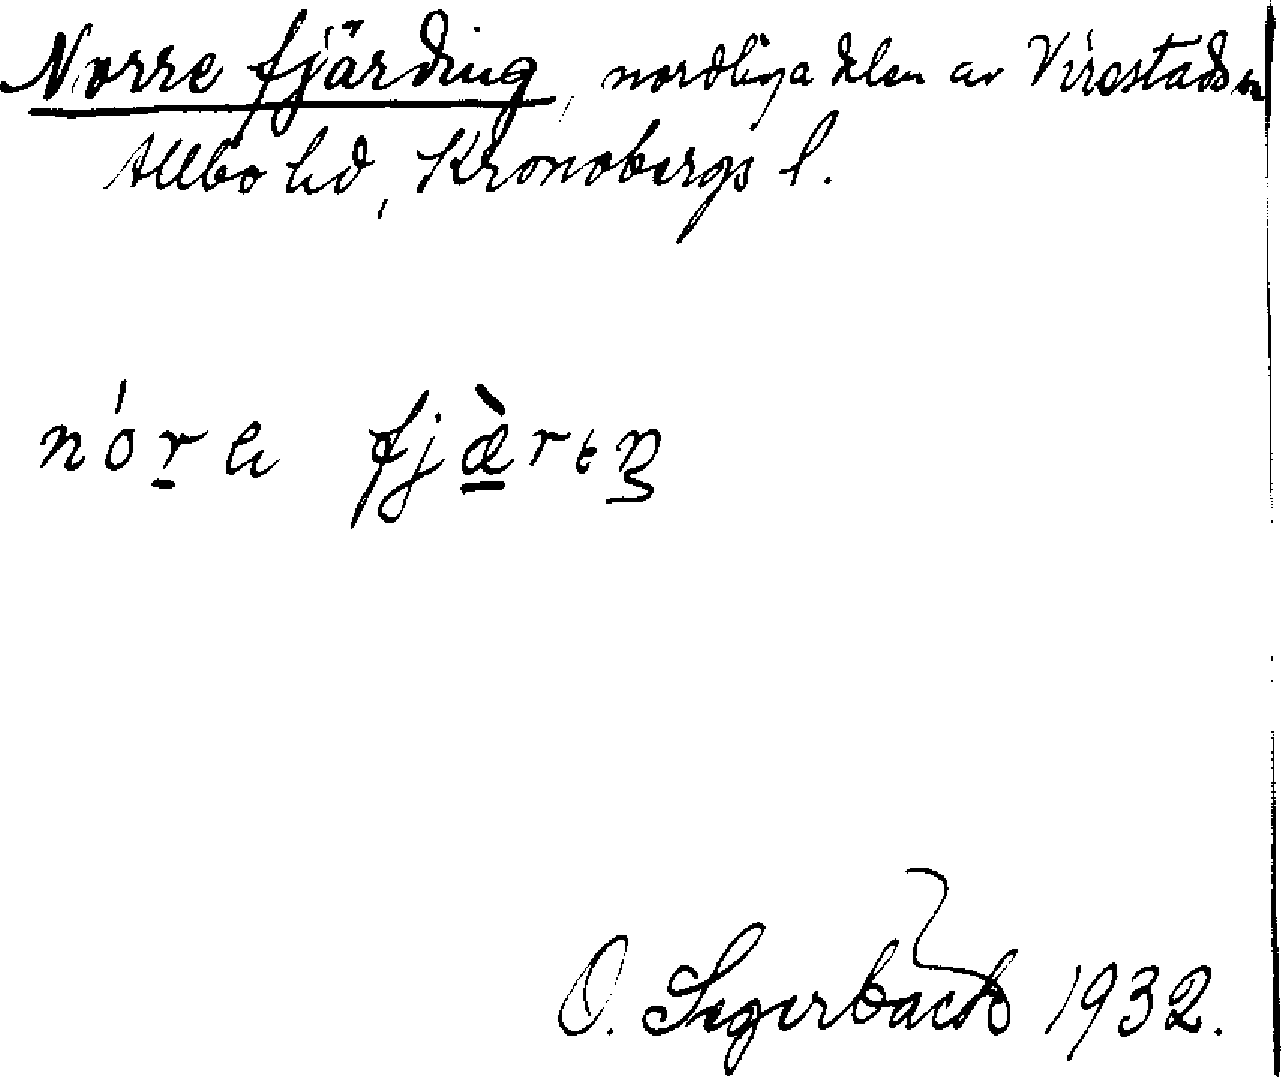 Norre fjärding, nordliga delen av Virestads sn
Allbo hd, Kronobergs l.
nóre fjæ̀reŋ
O. Segerbäck 1932.